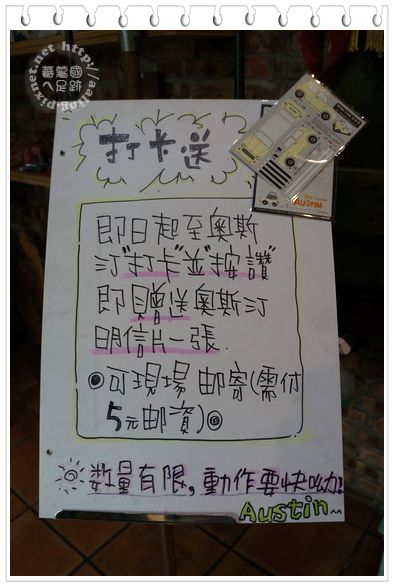 打卡送
即日起至奧斯
汀"打卡"並"按讚"
即贈送奧斯汀
明信片一張.
◎可現場郵寄(需付
5元郵資)◎
數量有限,動作要快呦!
Austin~~
AUSTIN
蕃薯國
ㄟ足跡